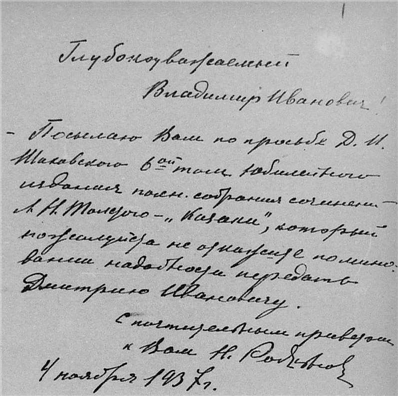 Глубокоуважаемый
Владимир Иванович!
– Посылаю Вам по просьбе Д. И.
Шаховского 6ой том Юбилейного
издания полн. собрания сочинени–
Л. Н. Толстого – „Казаки", который
пожалуйста не откажите по мино–
вании надобности передать
Дмитрию Ивановичу.
С почтительным приветом
к Вам Н.
4 ноября 1937 г.